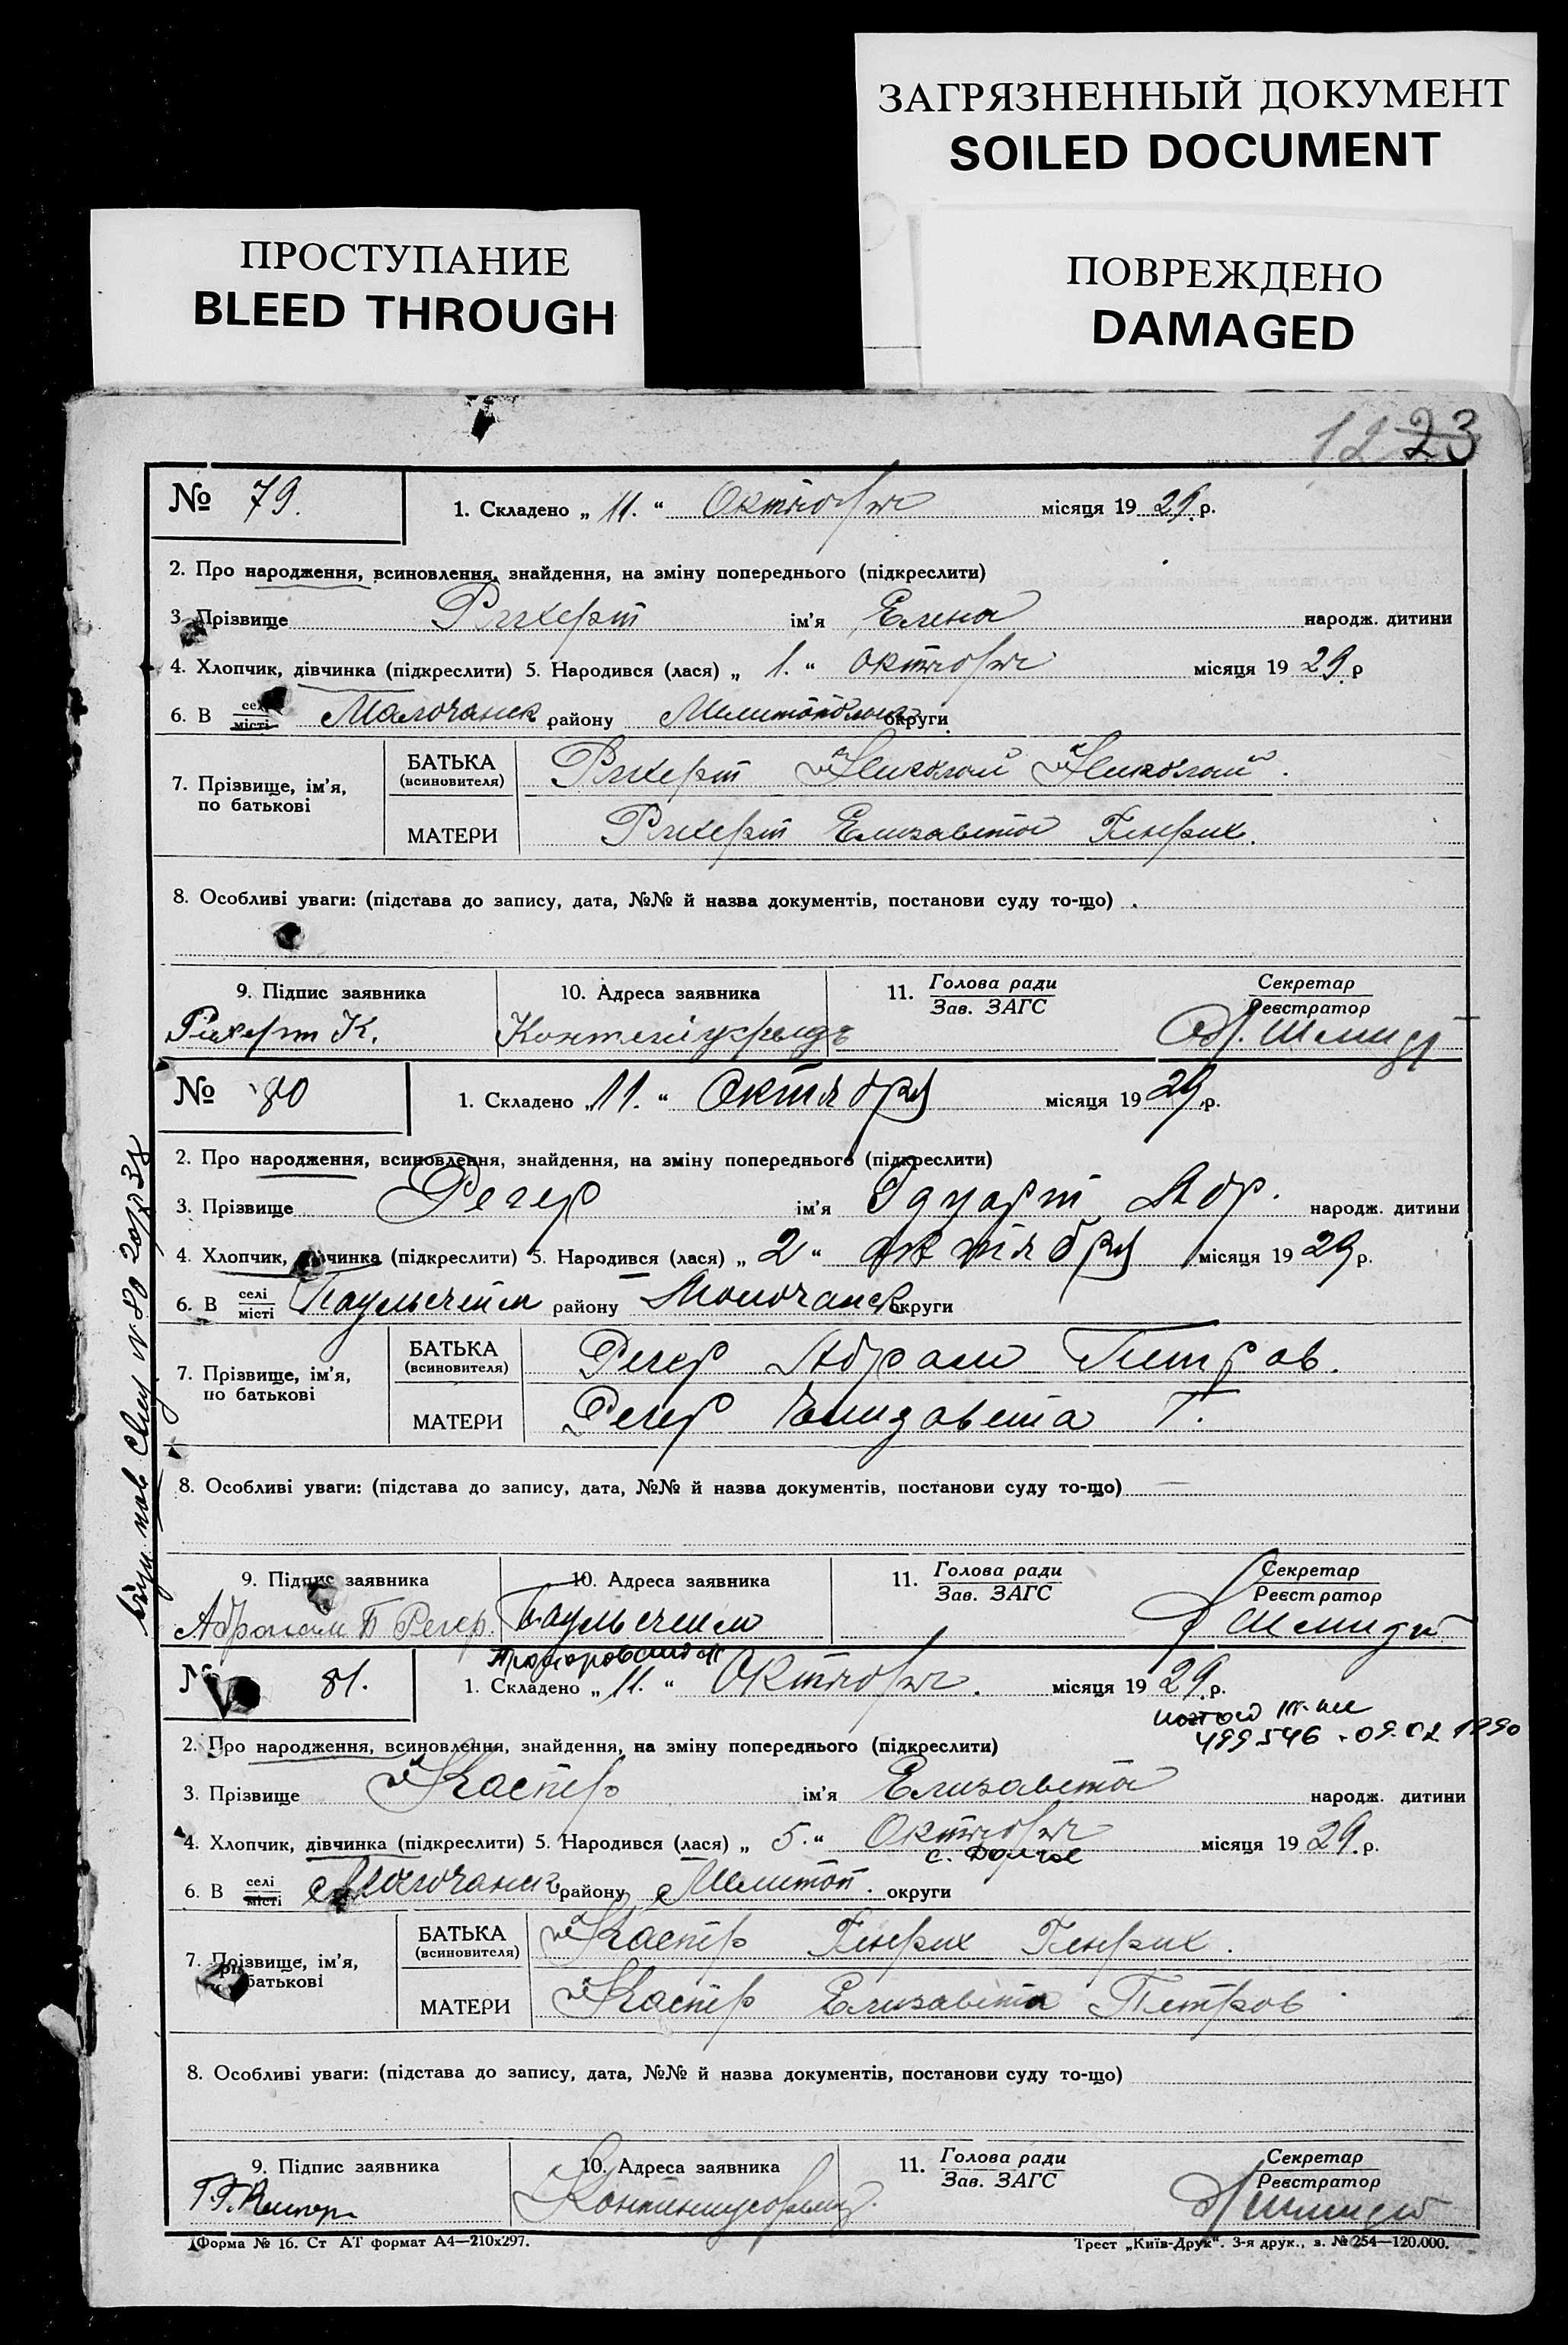 ЗАГРЯЗНЕННЫЙ ДОКУМЕНТ
SOILED DOCUMENT
ПРОСТУПАНИЕ
BLEED THROUGH
ПОВРЕЖДЕНО
DAMAGED
12 23
№ 79. 1. Складено „ 11. “ Октября місяця 19 29 р.
2. Про народження, всиновлення, знайдення, на зміну попереднього (підкреслити)
3. Прізвище Рихерт ім'я Елена народж. дитини
4. Хлопчик, дівчинка (підкреслити) 5. Народився (лася) „ 1. “ октября місяця 19 29 р
6. В селі місті Малочанск району Мелитополь округи
7. Прізвище, ім'я, по батькові
БАТЬКА (всиновителя) Рихерт Николай Николай.
МАТЕРИ Рихерт Елизавета Генрих.
8. Особливі уваги: (підстава до запису, дата, №№ й назва документів, постанови суду то-що)
9. Підпис заявника 10. Адреса заявника 11. Голова ради Зав. ЗАГС Секретар Реєстратор
Рихерт К. Шмидт
№ 80 1. Складено „ 11. “ Октября місяця 19 29 р.
2. Про народження, всиновлення, знайдення, на зміну попереднього (підкреслити)
3. Прізвище Регер ім'я Эдуарт Абр. народж. дитини
4. Хлопчик, дівчинка (підкреслити) 5. Народився (лася) „ 2 “ октября місяця 19 29 р.
6. В селі місті Паульсгейм району Молочанск округи
7. Прізвище, ім'я, по батькові
БАТЬКА (всиновителя) Регер Абрам Петров.
МАТЕРИ Регер Елизавета Г.
8. Особливі уваги: (підстава до запису, дата, №№ й назва документів, постанови суду то-що)
9. Підпис заявника 10. Адреса заявника 11. Голова ради Зав. ЗАГС Секретар Реєстратор
Абрахам П Регер. Паульсгейм Шмидт
№ 81. 1. Складено „ 11. “ Октября. місяця 19 29 р.
499546 - 09.02 1990
2. Про народження, всиновлення, знайдення, на зміну попереднього (підкреслити)
3. Прізвище Каспер ім'я Елизавета народж. дитини
4. Хлопчик, дівчинка (підкреслити) 5. Народився (лася) „ 5. “ Октября місяця 19 29 р.
с. Долгое
6. В селі місті Малочанск району Мелитоп. округи
7. Прізвище, ім'я, по батькові
БАТЬКА (всиновителя) Каспер Генрих Генрих.
МАТЕРИ Каспер Елизавета Петров
8. Особливі уваги: (підстава до запису, дата, №№ й назва документів, постанови суду то-що)
9. Підпис заявника 10. Адреса заявника 11. Голова ради Зав. ЗАГС Секретар Реєстратор
Форма № 16. Ст АТ формат А4—210х297.
Трест „Київ-Друк“. 3-я друк., з. № 254—120.000.